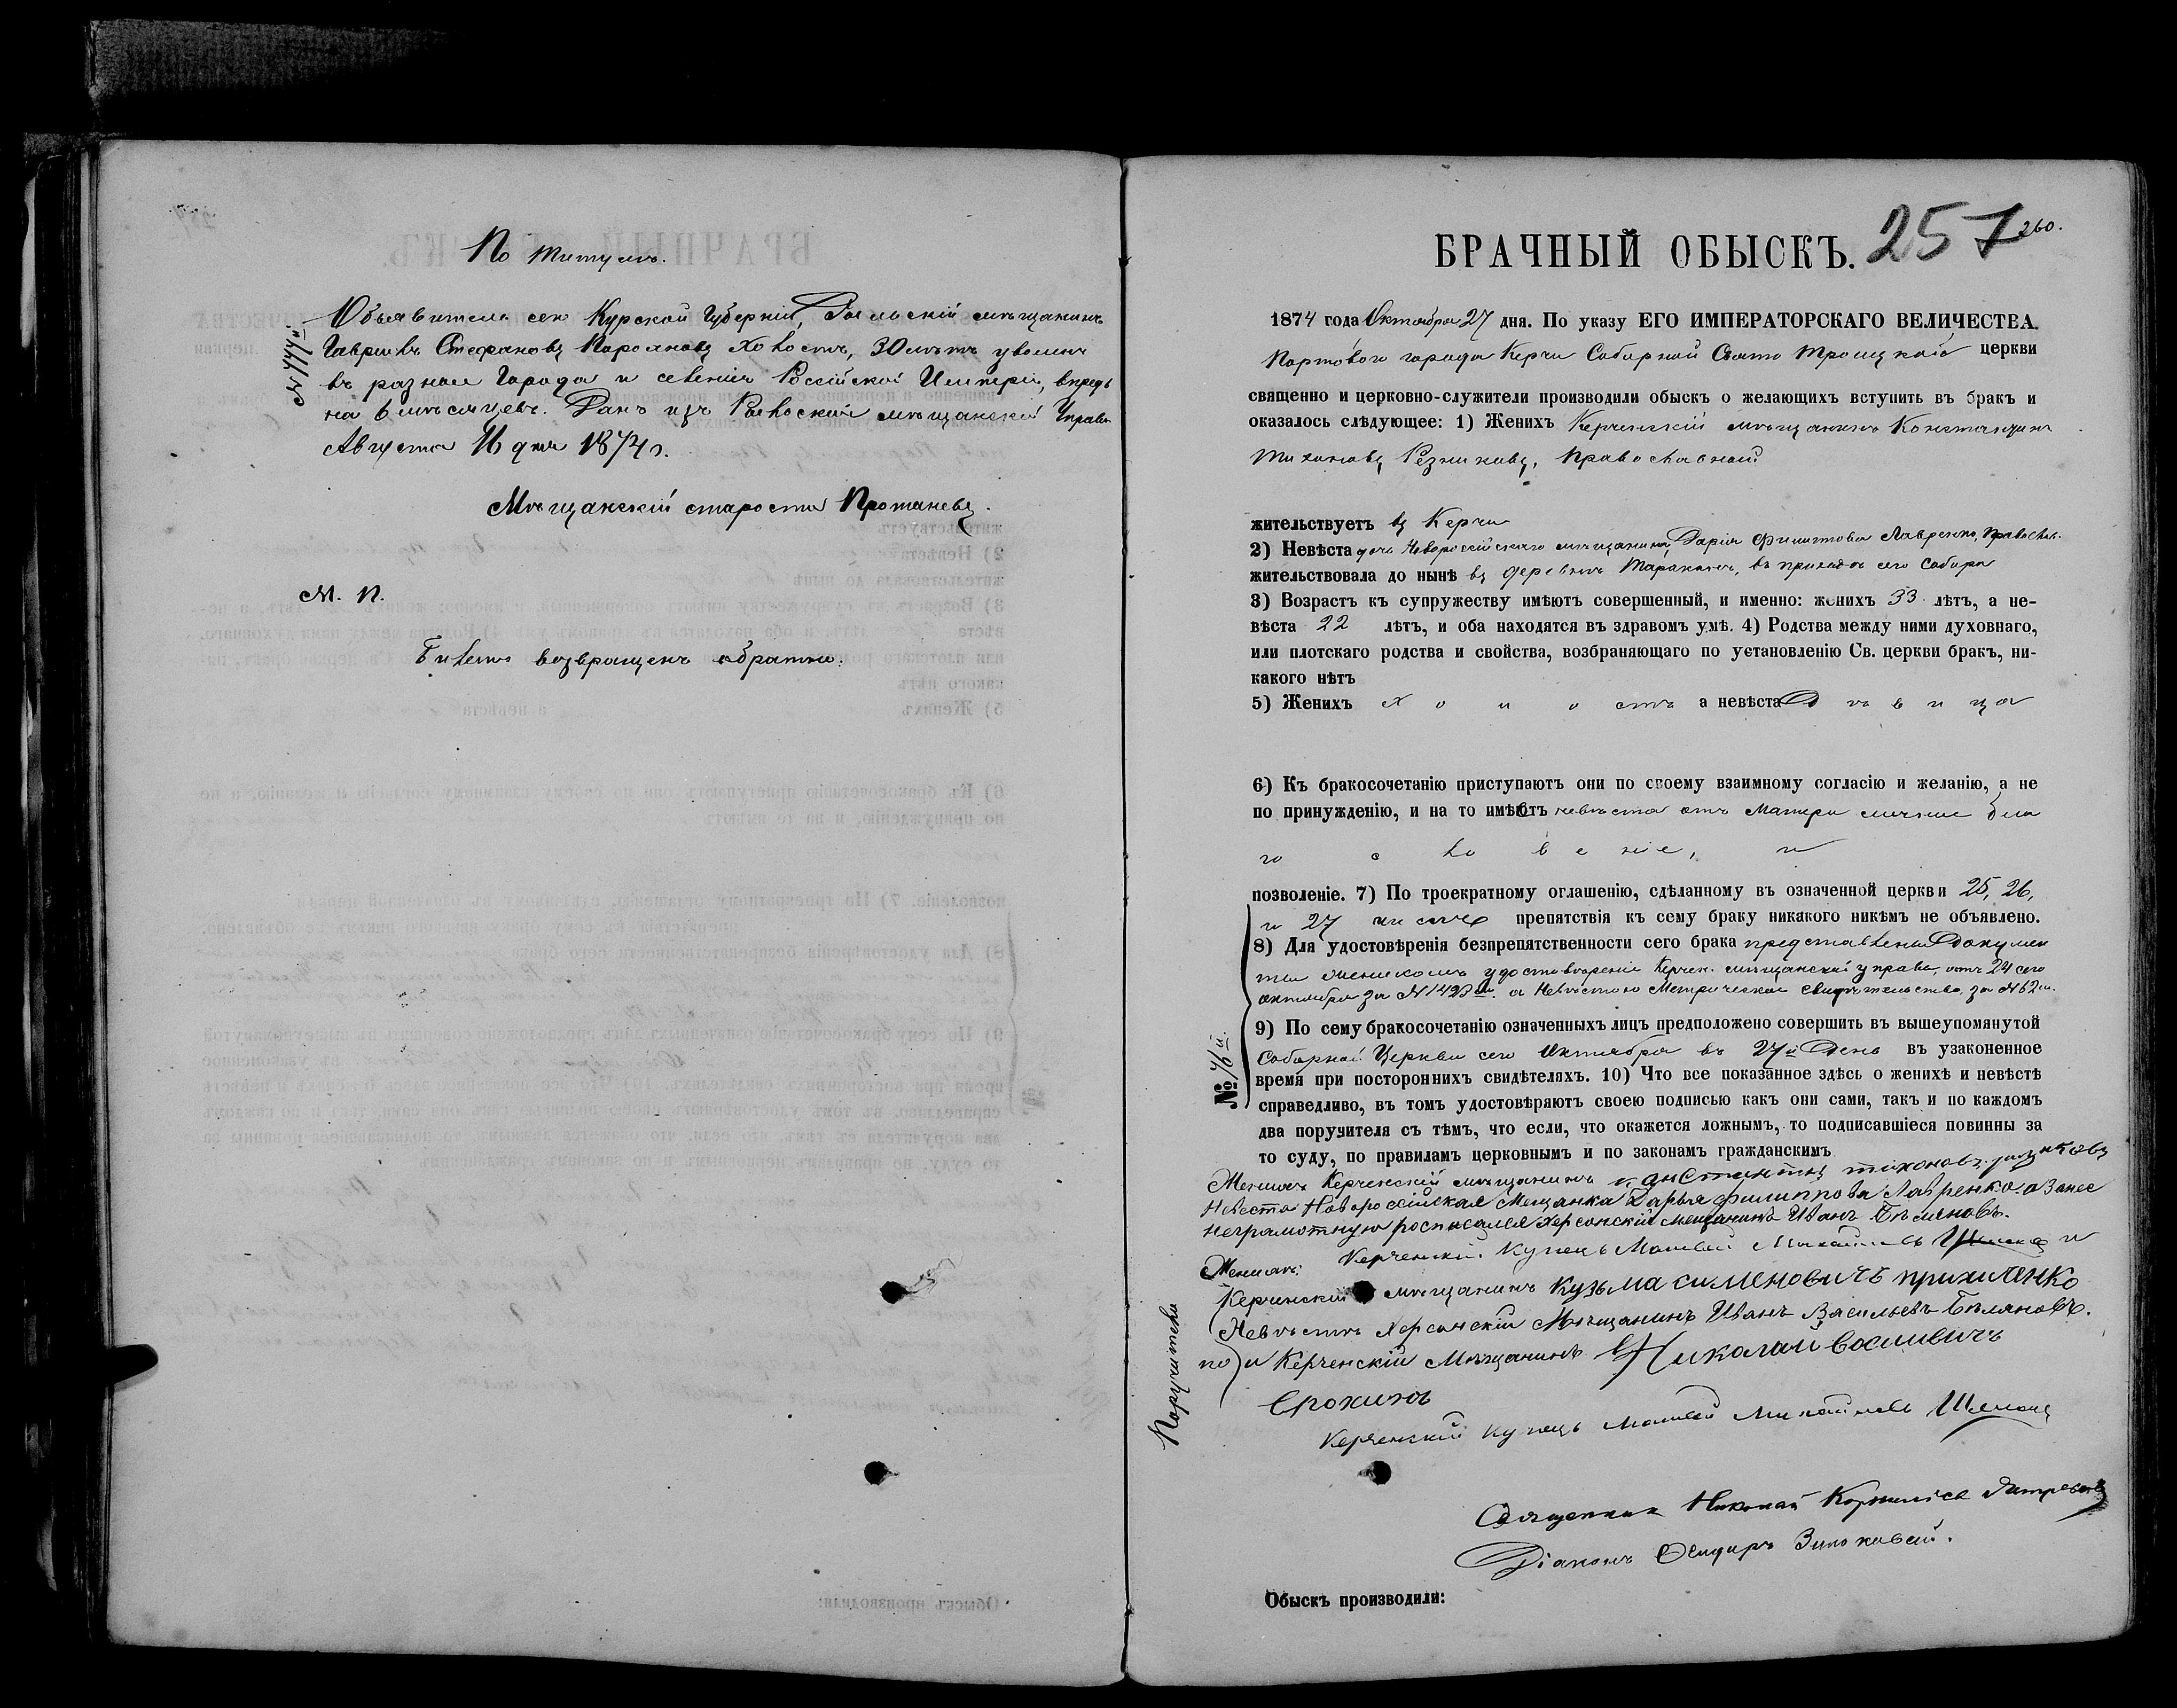 По титулѣ.
№ 1444й.
Объявитель сей Курской Губерніи, Рыльскій мѣщанинъ
Гавріилъ Стефановъ холостъ, 30 лѣтъ уволенъ
въ разные Города и селенія Россійской Имперіи, впредь
на 6 мѣсяцевъ. Данъ изъ мѣщанской Управы
Августа 16 дня 1874 г.
Мѣщанскій староста
М. П.
Билетъ возвращенъ обратно.
257 260.
БРАЧНЫЙ ОБЫСКЪ.
1874 года Октября 27 дня. По указу ЕГО ИМПЕРАТОРСКАГО ВЕЛИЧЕСТВА
Портоваго города Керчи Соборной Свято Троицкой церкви
священно и церковно-служители производили обыскъ о желающихъ вступить въ бракъ и
оказалось слѣдующее: 1) Женихъ Керченскій мѣщанинъ Константинъ
Тихоновъ Резниковъ, православный
жительствуетъ въ Керчи
2) Невѣста дочь Новороссійскаго мѣщанина, Дарія Филиппова Лавренко, правосл.
жительствовала до нынѣ въ деревнѣ въ приходѣ сего собора
3) Возрастъ къ супружеству имѣютъ совершенный, и именно: женихъ 33 лѣтъ, а не-
вѣста 22 лѣтъ, и оба находятся въ здравомъ умѣ. 4) Родства между ними духовнаго,
или плотскаго родства и свойства, возбраняющаго по установленію Св. церкви бракъ, ни-
какого нѣтъ
5) Женихъ холостъ а невѣста Дѣвица
6) Къ бракосочетанію приступаютъ они по своему взаимному согласію и желанію, а не
по принужденію, и на то имѣютъ невѣста отъ матери личное бла
гословеніе, и
позволеніе. 7) По троекратному оглашенію, сдѣланному въ означенной церкви 25, 26,
и 27 числъ препятствія къ сему браку никакого никѣмъ не объявлено.
8) Для удостовѣренія безпрепятственности сего брака представлены Докумен
ты женихомъ удостовѣреніе Керчен. мѣщанской управы, отъ 24 сего
октября за № 1423м. а Невѣстою Метрическое свидѣтельство за № 62м.
9) По сему бракосочетанію означенныхъ лицъ предположено совершить въ вышеупомянутой
Соборной Церкви сего Октября въ 27й День въ узаконенное
№ 76й.
время при постороннихъ свидѣтеляхъ. 10) Что все показанное здѣсь о женихѣ и невѣстѣ
справедливо, въ томъ удостовѣряютъ своею подписью какъ они сами, такъ и по каждомъ
два поручителя съ тѣмъ, что если, что окажется ложнымъ, то подписавшіеся повинны за
то суду, по правиламъ церковнымъ и по законамъ гражданскимъ
Женихъ Керченскій мѣщанинъ константинъ тихоновъ
Невеста Новороссійская Мещанка Дарья филиппова Лавренко. а занее
неграмотную росписался херсонскій мещанинъ Иванъ Беляновъ.
Поручители
по
Женихѣ: Керченскій Купецъ Матвей Михайловъ и
Керченскій мѣщанинъ Кузьма сименовичъ прихиленко
Невѣстѣ Херсонскій Мѣщанинъ Иванъ Васильевъ Беляновъ.
и Керченскій Мѣщанинъ Николай василивичъ
Ерохинъ
Керченскій купецъ Матвей Михайловъ
Священникъ Николай
Діаконъ
Обыскъ производили: